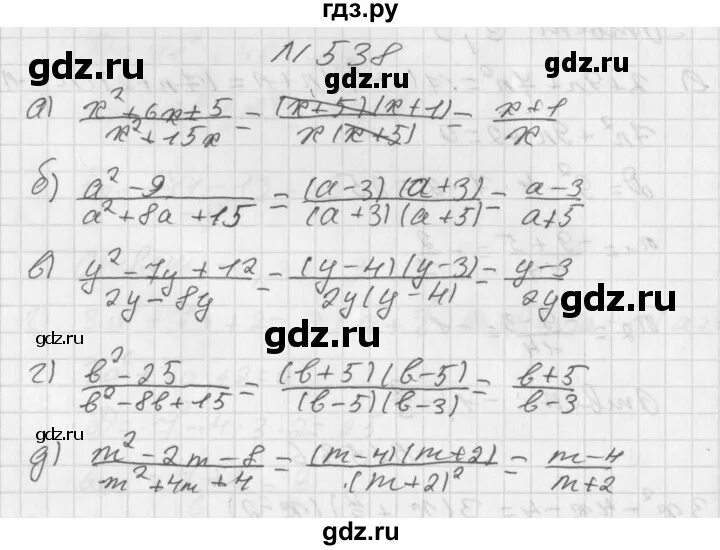 гдз.ру
gdz.ru gdz.ru
N 538
а) (x² + 6x + 5)/(x² + 15x) = ((x+5)(x+1))/(x(x+5)) = (x+1)/x
б) (a² - 9)/(a² + 8a + 15) = ((a-3)(a+3))/((a+3)(a+5)) = (a-3)/(a+5)
в) (y² - 7y + 12)/(2y - 8y) = ((y-4)(y-3))/(2y(y-4)) = (y-3)/(2y)
gdz.ru
gdz.ru gdz.ru gdz.ru
г) (b² - 25)/(b² - 8b + 15) = ((b+5)(b-5))/((b-5)(b-3)) = (b+5)/(b-3)
gdz.ru gdz.ru
д) (m² - 2m - 8)/(m² + 4m + 4) = ((m-4)(m+2))/((m+2)²) = (m-4)/(m+2)
gdz.ru